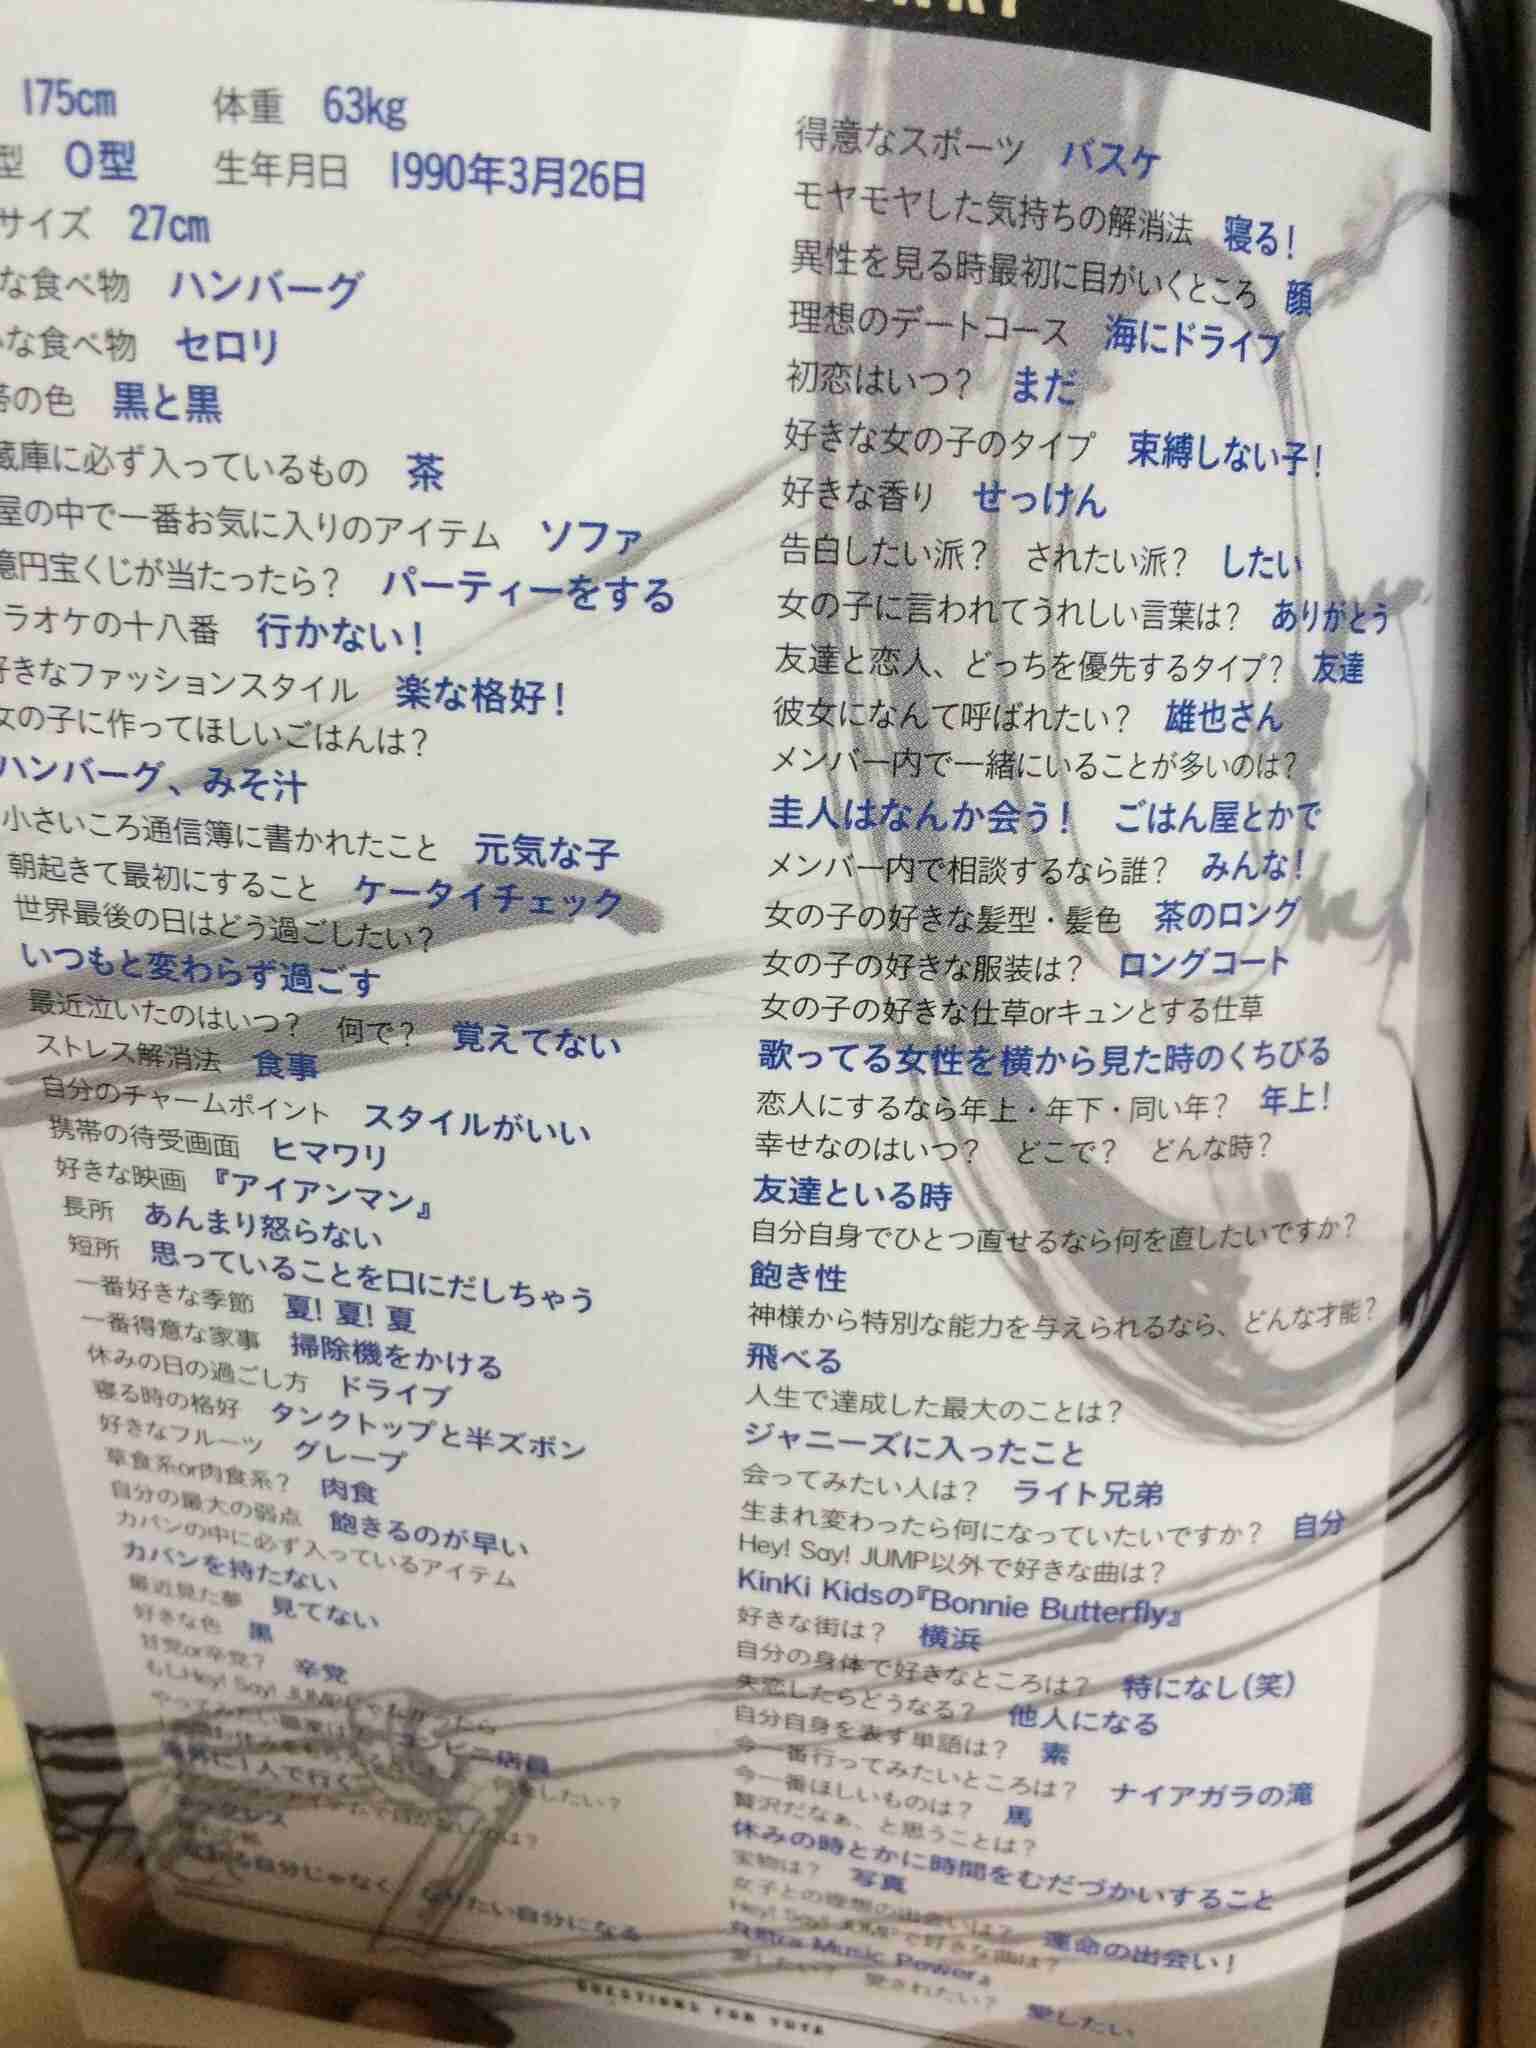 175cm 体重 63kg
型 O型 生年月日 1990年3月26日
サイズ 27cm
な食べ物 ハンバーグ
な食べ物 セロリ
の色 黒と黒
蔵庫に必ず入っているもの 茶
屋の中で一番お気に入りのアイテム ソファ
億円宝くじが当たったら? パーティーをする
ラオケの十八番 行かない!
好きなファッションスタイル 楽な格好!
女の子に作ってほしいごはんは?
ハンバーグ、みそ汁
小さいころ通信簿に書かれたこと 元気な子
朝起きて最初にすること ケータイチェック
世界最後の日はどう過ごしたい?
いつもと変わらず過ごす
最近泣いたのはいつ? 何で? 覚えてない
ストレス解消法 食事
自分のチャームポイント スタイルがいい
携帯の待受画面 ヒマワリ
好きな映画 『アイアンマン』
長所 あんまり怒らない
短所 思っていることを口にだしちゃう
一番好きな季節 夏!夏!夏
一番得意な家事 掃除機をかける
休みの日の過ごし方 ドライブ
寝る時の格好 タンクトップと半ズボン
好きなフルーツ グレープ
草食系or肉食系? 肉食
自分の最大の弱点 飽きるのが早い
カバンの中に必ず入っているアイテム
カバンを持たない
最近見た夢 見てない
好きな色 黒
甘党or辛党? 辛党
もしHey! Say! JUMPじゃなかったら
やってみたい職業は? コンビニ店員
したい?
海外に1人で行く
ネックレス
自分じゃなく なりたい自分になる
得意なスポーツ バスケ
モヤモヤした気持ちの解消法 寝る!
異性を見る時最初に目がいくところ 顔
理想のデートコース 海にドライブ
初恋はいつ? まだ
好きな女の子のタイプ 束縛しない子!
好きな香り せっけん
告白したい派? されたい派? したい
女の子に言われてうれしい言葉は? ありがとう
友達と恋人、どっちを優先するタイプ? 友達
彼女になんて呼ばれたい? 雄也さん
メンバー内で一緒にいることが多いのは?
圭人はなんか会う! ごはん屋とかで
メンバー内で相談するなら誰? みんな!
女の子の好きな髪型・髪色 茶のロング
女の子の好きな服装は? ロングコート
女の子の好きな仕草orキュンとする仕草
歌ってる女性を横から見た時のくちびる
恋人にするなら年上・年下・同い年? 年上!
幸せなのはいつ? どこで? どんな時?
友達といる時
自分自身でひとつ直せるなら何を直したいですか?
飽き性
神様から特別な能力を与えられるなら、どんな才能?
飛べる
人生で達成した最大のことは?
ジャニーズに入ったこと
会ってみたい人は? ライト兄弟
生まれ変わったら何になっていたいですか? 自分
Hey! Say! JUMP以外で好きな曲は?
KinKi Kidsの『Bonnie Butterfly』
好きな街は? 横浜
自分の身体で好きなところは? 特になし(笑)
失恋したらどうなる? 他人になる
自分自身を表す単語は? 素
今一番行ってみたいところは? ナイアガラの滝
今一番ほしいものは? 馬
贅沢だなぁ、と思うことは?
休みの時とかに時間をむだづかいすること
宝物は? 写真
女子との理想の出会いは? 運命の出会い!
Hey! Say! JUMPで好きな曲は?
『Ultra Music Power』
愛したい? 愛されたい? 愛したい
QUESTIONS FOR YUYA